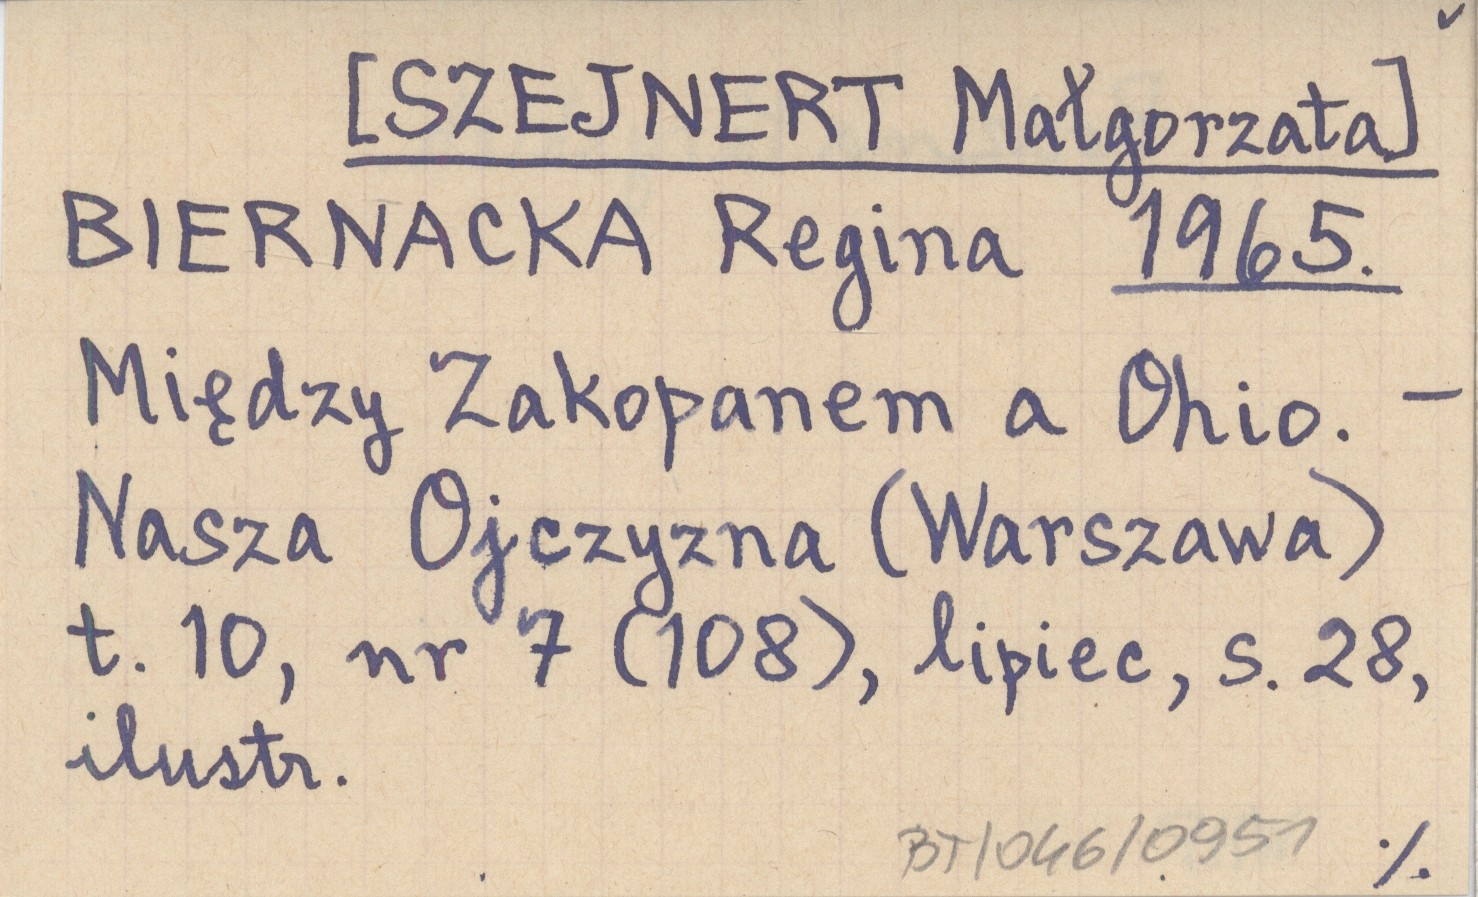 [SZEJNERT Małgorzata]
BIERNACKA Regina 1965.
Między Zakopanem a Ohio. –
Nasza Ojczyzna (Warszawa)
t. 10, nr 7 (108), lipiec, s. 28,
ilustr.
BT/046/0951 ·/.